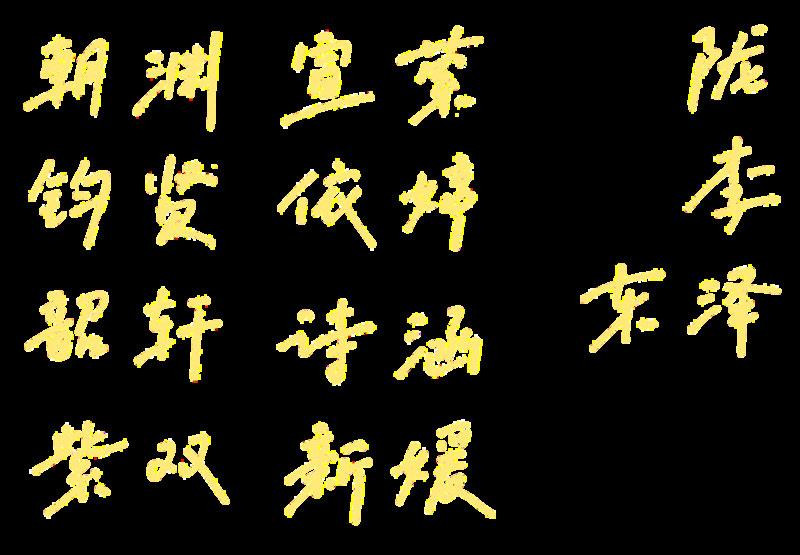 朝渊 宣萦 陇
钧贤 依婷 李
韶轩 诗涵 东泽
紫双 新媛